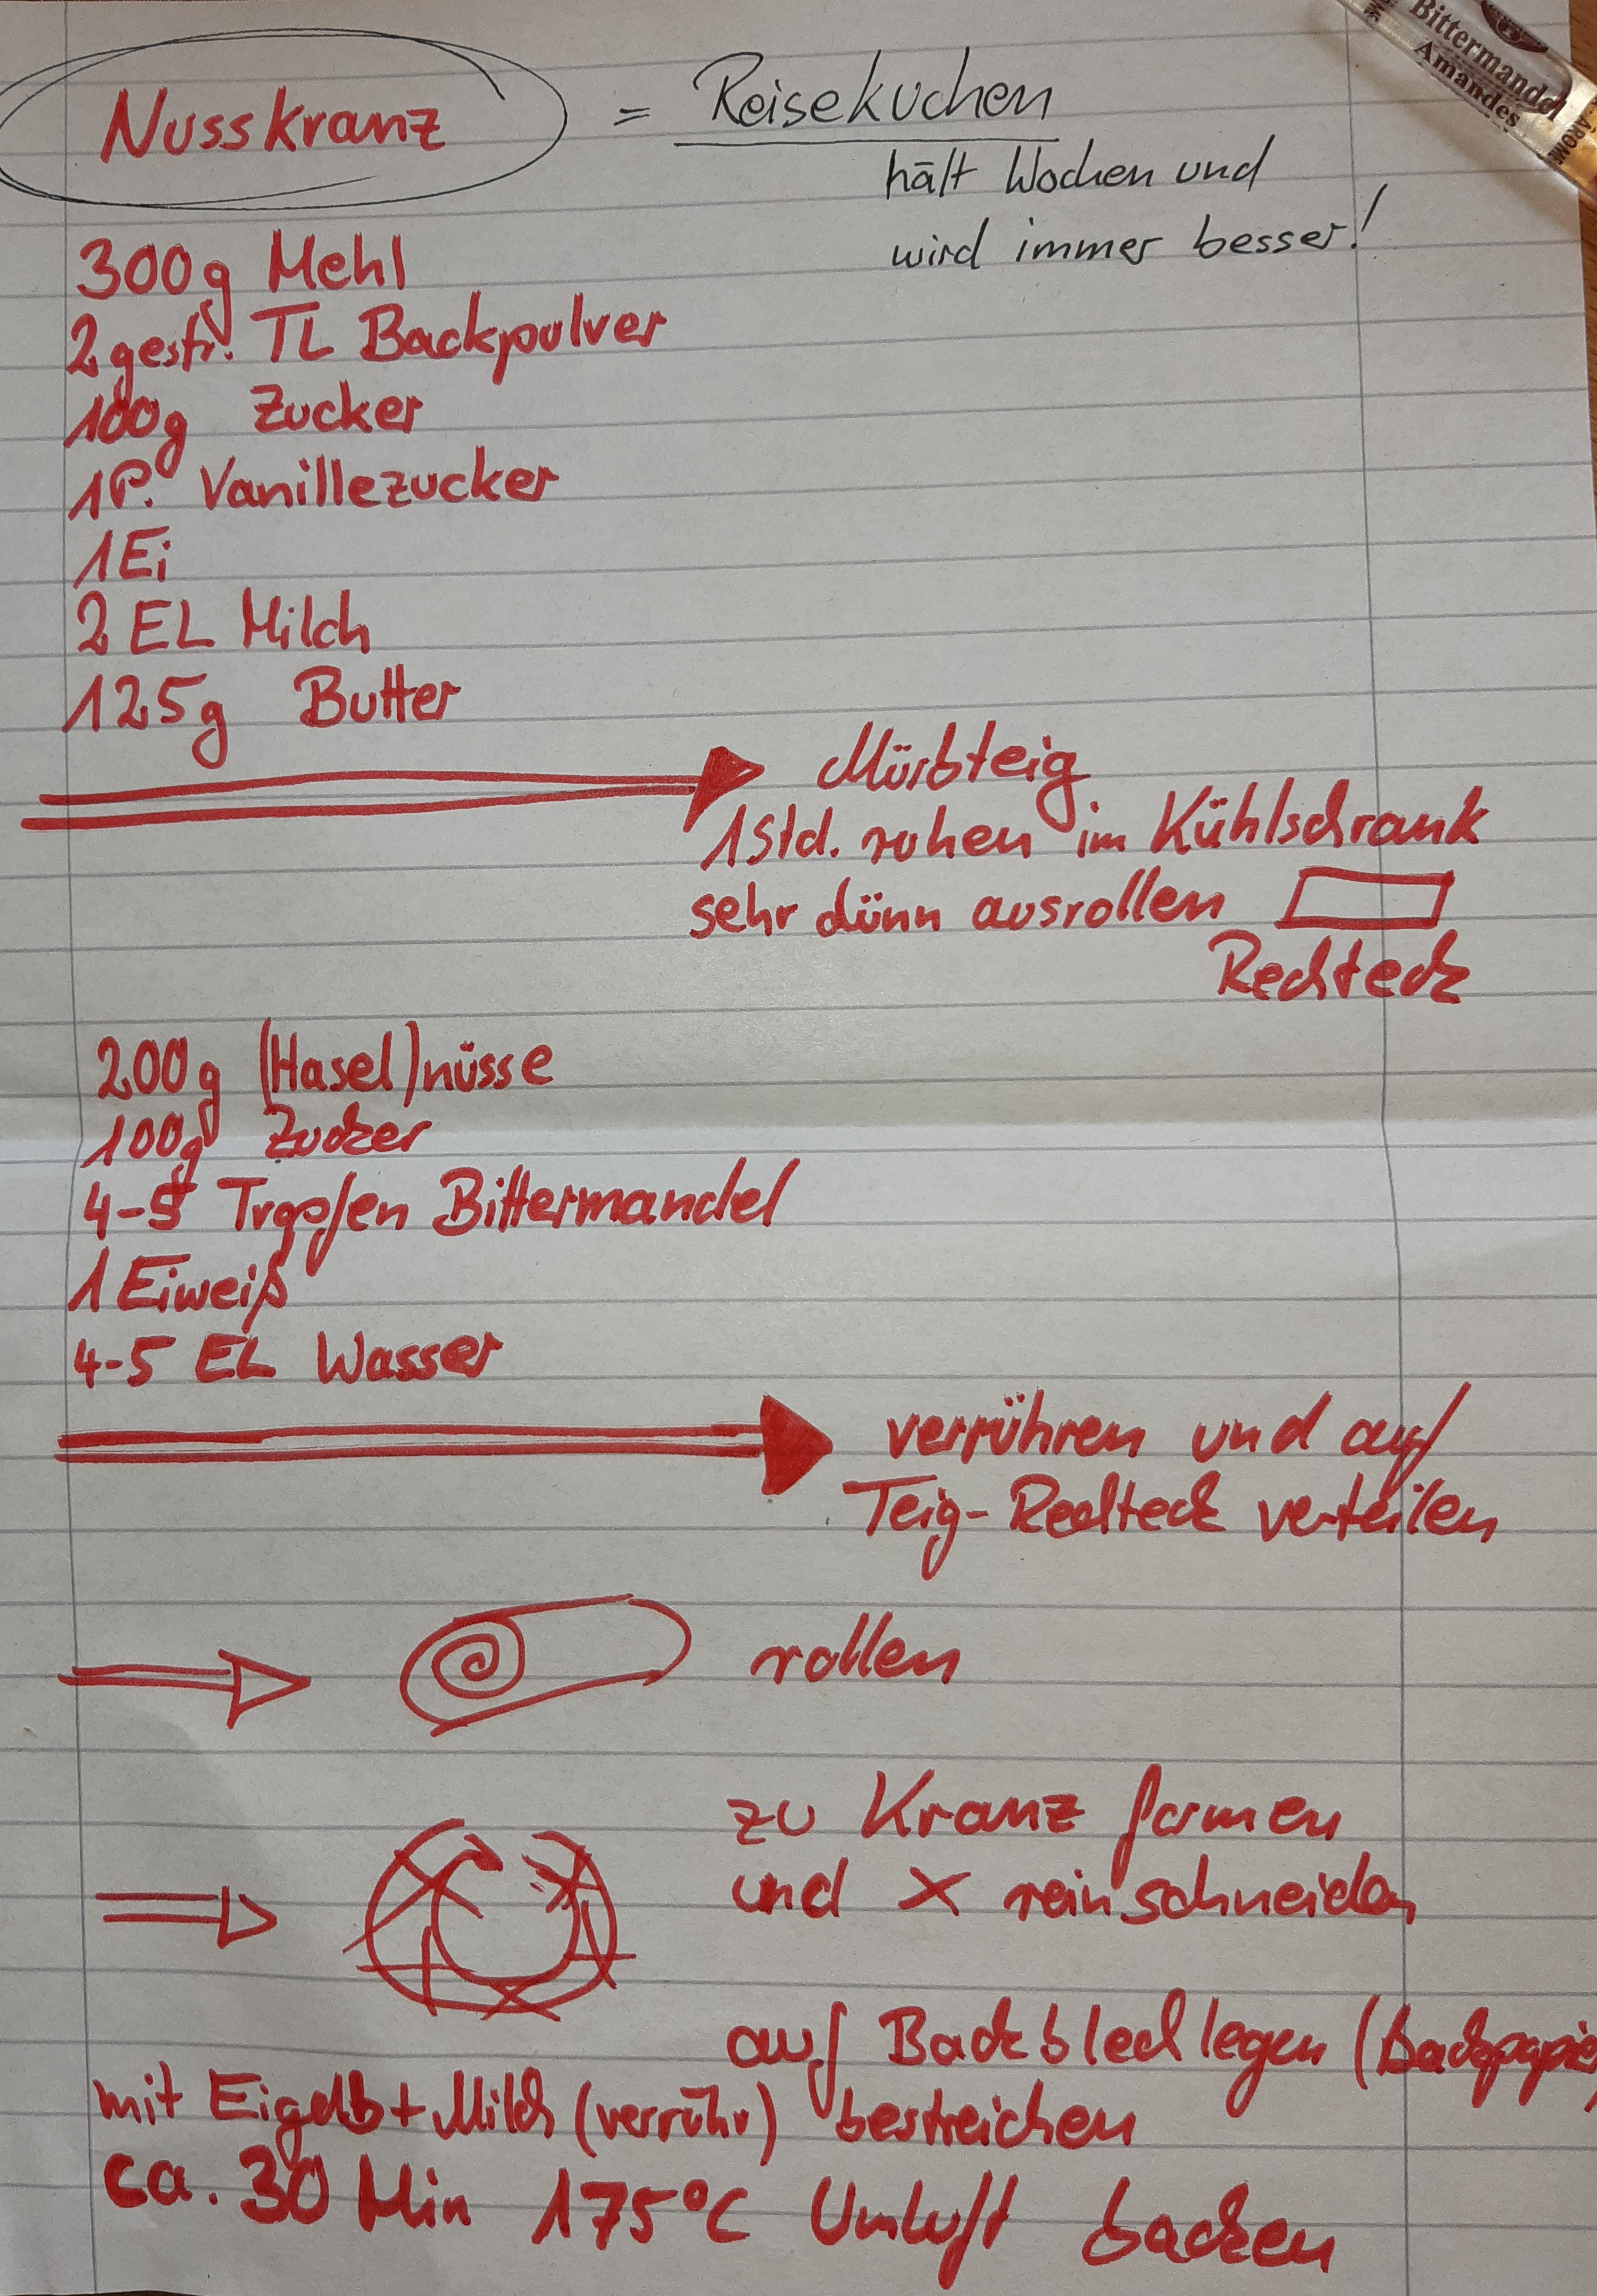 Nusskranz = Reisekuchen
hält Wochen und
wird immer besser!
Bittermandel
Amandes
300g Mehl
2 gestr. TL Backpulver
100g Zucker
1P. Vanillezucker
1 Ei
2 EL Milch
125g Butter
Mürbteig
1 Std. ruhen im Kühlschrank
sehr dünn ausrollen
Rechteck
200g (Hasel)nüsse
100g Zucker
4-5 Tropfen Bittermandel
1 Eiweiß
4-5 EL Wasser
verrühren und auf
Teig-Rechteck verteilen
rollen
zu Kranz formen
und X reinschneiden
auf Backblech legen (Backpapier)
mit Eigelb + Milch (verrühr) bestreichen
ca. 30 Min 175°C Umluft backen